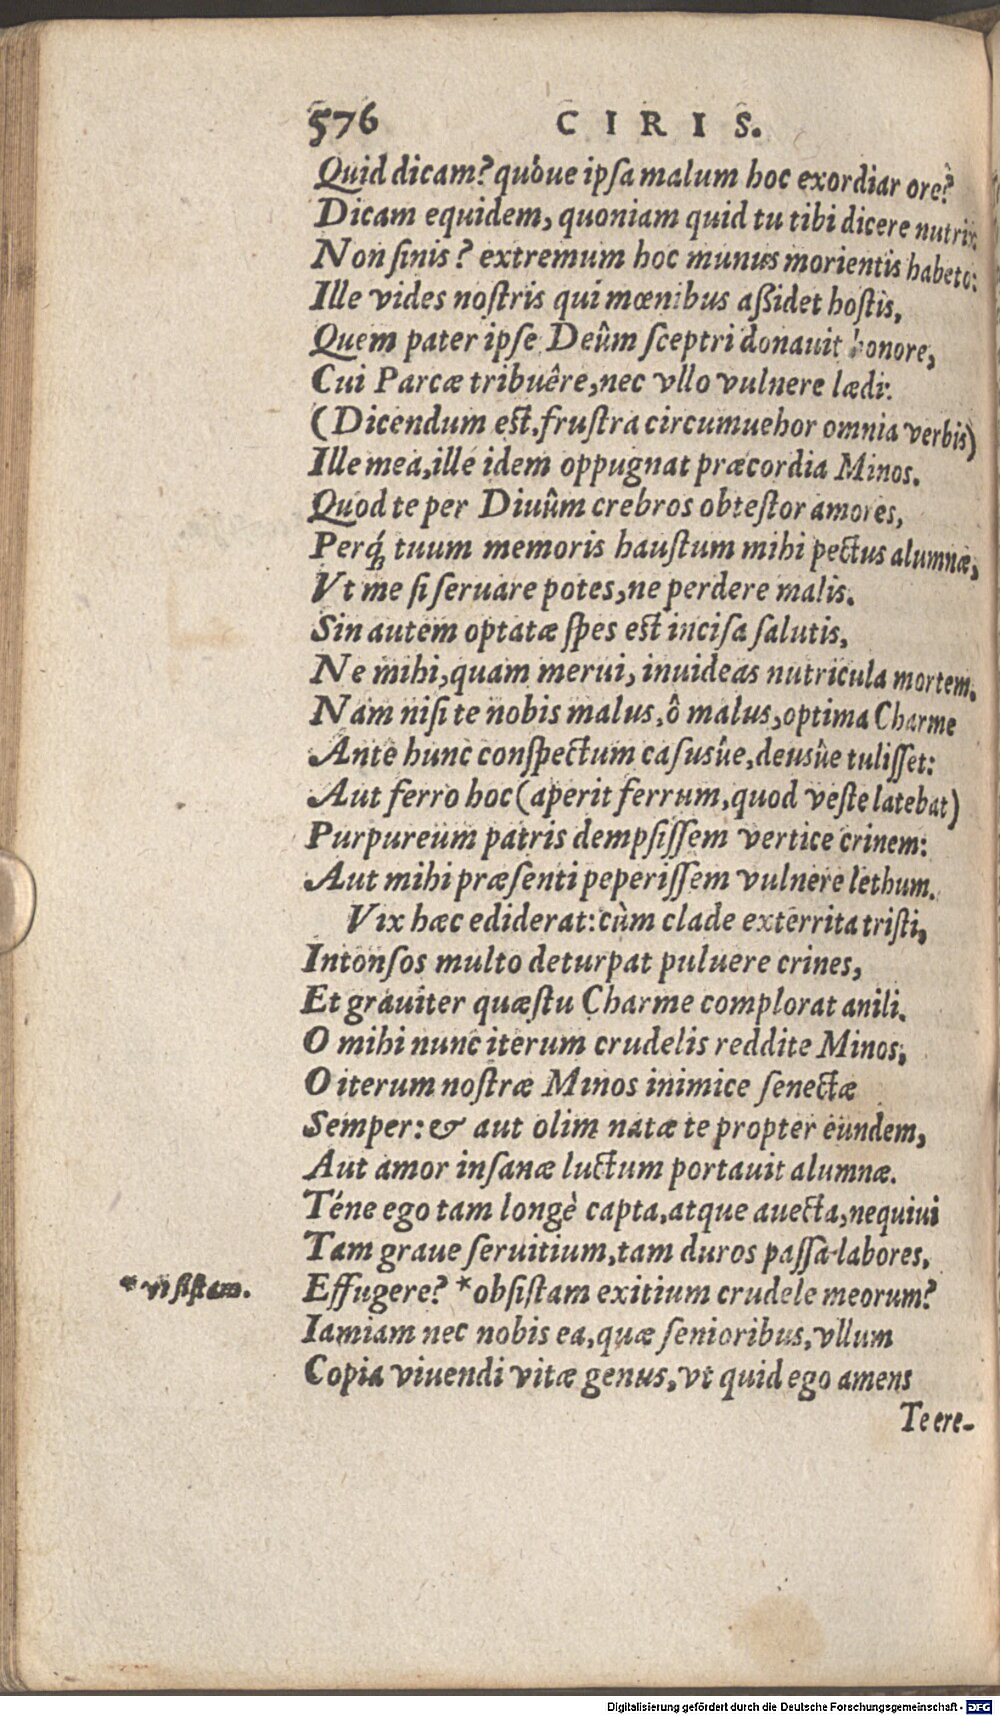 576 CIRIS.
Quid dicam? quóue ipſa malum hoc exordiar ore?
Dicam equidem, quoniam quid tu tibi dicere nutrix
Non ſinis? extremum hoc munus morientis habeto:
Ille vides noſtris qui mœnibus aßidet hoſtis,
Quem pater ipſe Deûm ſceptri donauit honore,
Cui Parcæ tribuêre, nec vllo vulnere lædi:
(Dicendum est, fruſtra circumuehor omnia verbis)
Ille mea, ille idem oppugnat præcordia Minos.
Quod te per Diuûm crebros obteſtor amores,
Perq́; tuum memoris hauſtum mihi pectus alumnæ,
Vt me ſi ſeruare potes, ne perdere malis.
Sin autem optatæ ſpes est inciſa ſalutis,
Ne mihi, quam merui, inuideas nutricula mortem.
Nam niſi te nobis malus, ô malus, optima Charme
Ante hunc conſpectum caſusúe, deusûe tuliſſet:
Aut ferro hoc (aperit ferrum, quod veſte latebat)
Purpureum patris dempſiſſem vertice crinem:
Aut mihi præſenti peperiſſem vulnere lethum.
Vix hæc ediderat: cùm clade exterrita triſti,
Intonſos multo deturpat puluere crines,
Et grauiter quæſtu Charme complorat anili.
O mihi nunc iterum crudelis reddite Minos,
O iterum noſtræ Minos inimice ſenectæ
Semper: & aut olim natæ te propter eundem,
Aut amor inſanæ luctum portauit alumnæ.
Téne ego tam longè capta, atque auecta, nequiui
Tam graue ſeruitium, tam duros paſſa labores,
* vt ſiſtam. Effugere? *obſiſtam exitium crudele meorum?
Iamiam nec nobis ea, quæ ſenioribus, vllum
Copia viuendi vitæ genus, vt quid ego amens
Te ere-
Digitalisierung gefördert durch die Deutsche Forschungsgemeinschaft - DFG